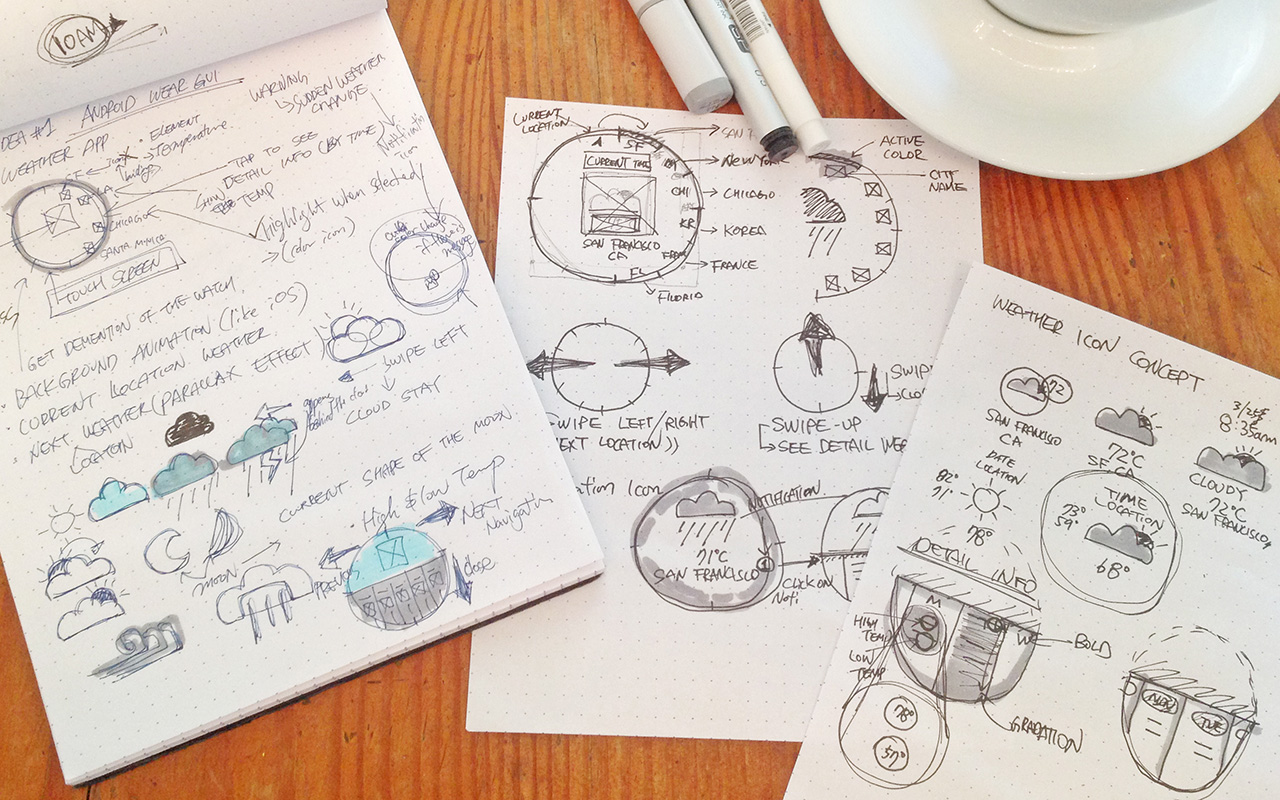 10AM
IDEA #1 ANDROID WEAR GUI
WEATHER APP
ELEMENT
Temperature
WARNING
SUDDEN WEATHER
CHANGE
TAP TO SEE
DETAIL
INFO (BY TIME)
SHOW
TEMP
SF
CHICAGO
SANTA MONICA
Highlight when selected
(color icon)
TOUCH SCREEN
GET DEMENTION OF THE WATCH
BACKGROUND ANIMATION (like iOS)
CURRENT LOCATION WEATHER
NEXT WEATHER (PARALLAX EFFECT)
LOCATION
SWIPE LEFT
CLOUD STAY
appears
behind the cloud
CURRENT SHAPE OF THE MOON
MOON
High & Low Temp
NEXT
Navigation
PREVIOUS
close
CURRENT
LOCATION
SF
SAN F
NEW YORK
CHI
CHICAGO
KR
KOREA
FRAN
FRANCE
FL
FLORID
CURRENT TIME
SAN FRANCISCO
CA
ACTIVE
COLOR
CITY
NAME
SWIPE LEFT/RIGHT
NEXT LOCATION))
SWIPE-UP
SEE DETAIL WE
SWIPE
CLO
ation Icon
NOTIFICATION
71°C
SAN FRANCISCO
1
CLICK ON
Noti
WEATHER ICON CONCEPT
72
SAN FRANCISCO
CA
72°C
SF, CA
8:35am
CLOUDY
72°C
SAN FRANCISCO
DATE
LOCATION
82°
71°
78°
TIME
LOCATION
73°
59°
68°
DETAIL INFO
HIGH
TEMP
LOW
TEMP
M
W
BOLD
GRADATION
78°
57°
MON
TUE